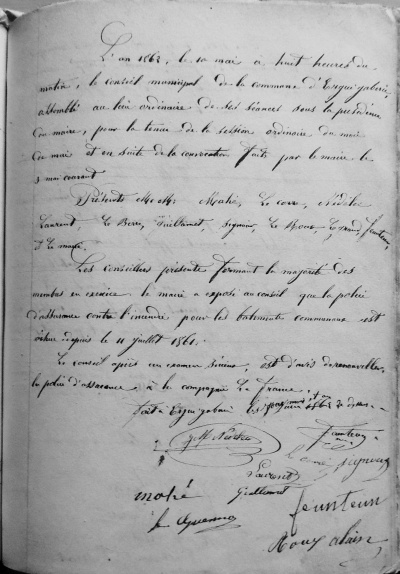 L'an 1862, le 10 mai à huit heures du
matin, le conseil municipal de la commune d'Ergué gabéric
assemblé au lieu ordinaire de ses séances sous la présidence
du maire, pour la tenue de la session ordinaire du mois
de mai et en suite de la convocation faite par le maire le
5 mai courant
Présents MM. Mahé, Le corre, Nédélec
Laurent, Le Berre, Guillamet, Signour, Le Roux, Le grand, feunteun,
& Le maire.
Les conseillers présents formant la majorité des
membres en exercice. le maire a exposé au conseil que la police
d'assurance contre l'incendie pour les batiments communaux est
échue depuis le 11 juillet 1861.
Le conseil après un examen sérieux, est d'avis de renouveller
la police d'assurance à la compagnie La France.
fait à Ergué gabéric les jour mois et an
Laurent
mahé Guillamet
feunteun
Roux alain